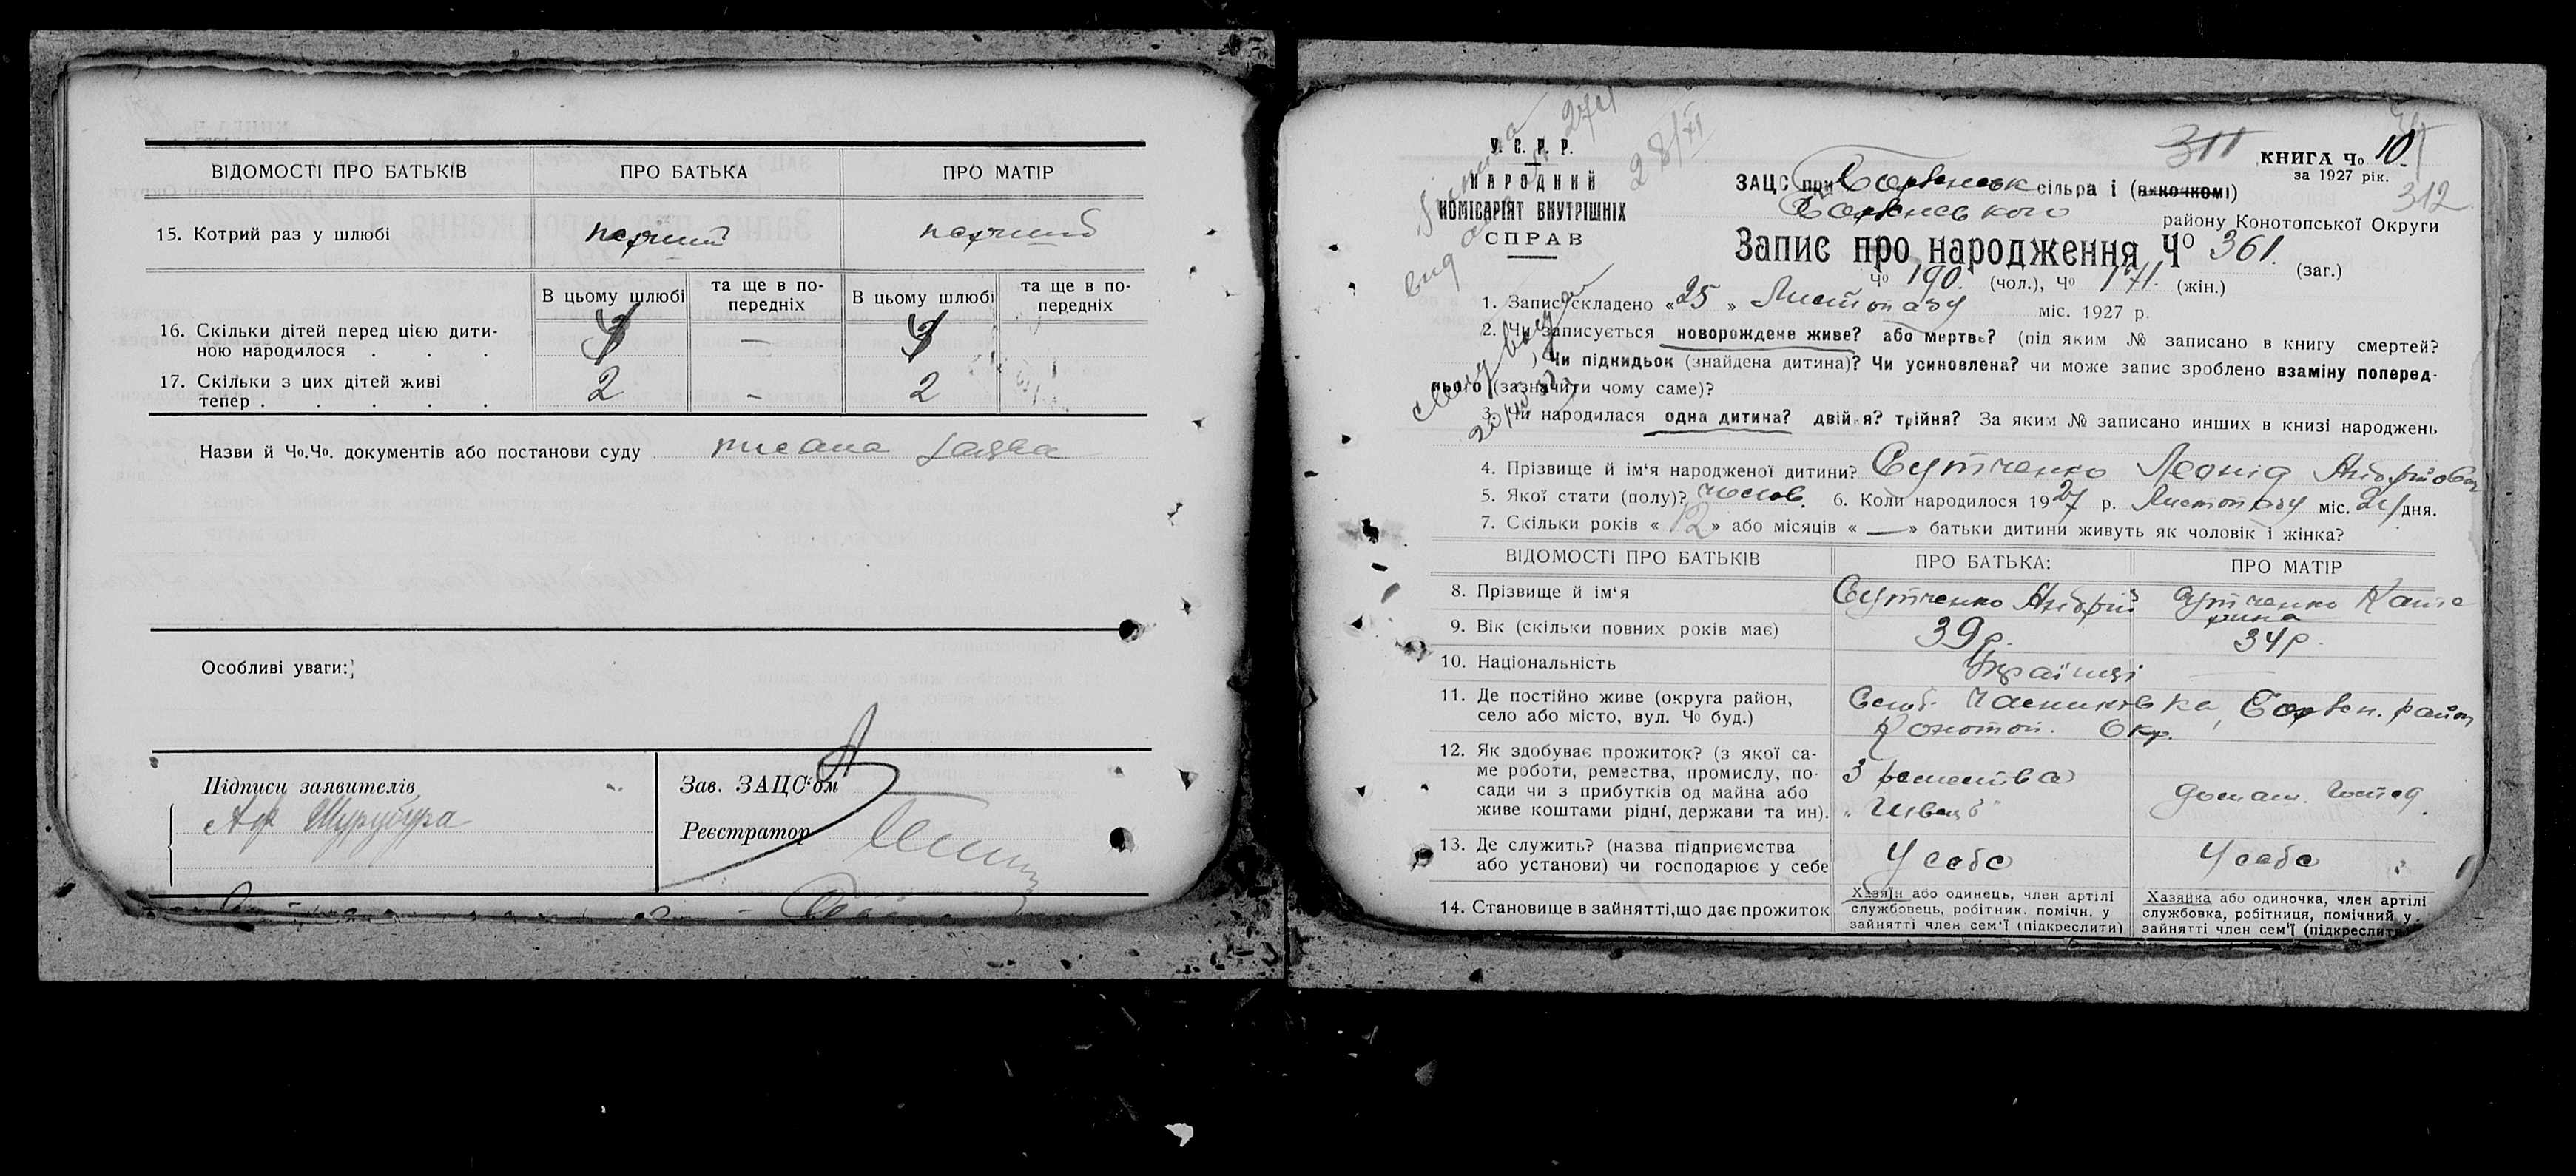 ВІДОМОСТІ ПРО БАТЬКІВ ПРО БАТЬКА ПРО МАТІР
15. Котрий раз у шлюбі перший перший
В цьому шлюбі та ще в по-передніх В цьому шлюбі та ще в по-передніх
16. Скільки дітей перед цією дити-
ною народилося . . . —
17. Скільки з цих дітей живі
тепер . . . . . 2 - 2
Назви й Чо.Чо. документів або постанови суду писана заява
Особливі уваги:
Підписи заявителів
Шурубура
Зав. ЗАЦС'ом
Реєстратор
У. С. Р. Р.
НАРОДНИЙ
КОМІСАРІЯТ ВНУТРІШНІХ
СПРАВ
28/XI
311 КНИГА Чо 10
за 1927 рік.
312
ЗАЦС при сільра і (виконкомі)
району Конотопської Округи
Запис про народження Чо 361. (заг.)
Чо 190. (чол.), Чо 171. (жін.)
1. Запис складено «25» Листопаду міс. 1927 р.
2. Чи записується новорождене живе? або мертве? (під яким № записано в книгу смертей?
) Чи підкидьок (знайдена дитина)? Чи усиновлена? чи може запис зроблено взаміну поперед-
нього (зазначити чому саме)?
3. Чи народилася одна дитина? двійня? трійня? За яким № записано инших в книзі народжень
4. Прізвище й ім'я народженої дитини? Леонід Андрійович
5. Якої стати (полу)? чолов. 6. Коли народилося 1927 р. Листопаду міс. 21 дня.
7. Скільки років «12» або місяців «—» батьки дитини живуть як чоловік і жінка?
ВІДОМОСТІ ПРО БАТЬКІВ ПРО БАТЬКА: ПРО МАТІР
8. Прізвище й ім'я Андрій Кате
рина
9. Вік (скільки повних років має) 39 р. 34 р.
10. Національність Українці
11. Де постійно живе (округа район,
село або місто, вул. Чо буд.) район
Конотоп. Окр.
12. Як здобуває прожиток? (з якої са-
ме роботи, ремества, промислу, по-
сади чи з прибутків од майна або
живе коштами рідні, держави та ин).
З ремества
„Швець"
домаш. господ.
13. Де служить? (назва підприємства
або установи) чи господарює у себе У себе У себе
14. Становище в зайнятті,що дає прожиток
Хазяїн або одинець, член артілі
службовець, робітник. помічн. у
зайнятті член сем'ї (підкреслити)
Хазяйка або одиночка, член артілі
службовка, робітниця, помічний у
зайнятті член сем'ї (підкреслити